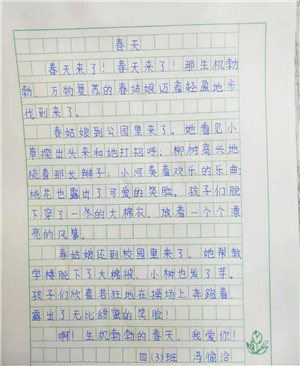 春天
春天来了！春天来了！那生机勃
勃、万物复苏的春姑娘迈着轻盈地步
伐到来了。
春姑娘到公园里来了。她看见小
草探出头来和她打招呼；柳树高兴地
挠着那长辫子；小河奏着欢乐的乐曲；
桃花也露出了可爱的笑脸。孩子们脱
下穿了一冬的大棉衣，放着一个个漂
亮的风筝。
春姑娘还到校园里来了。她帮教
学楼脱下了大棉袄，小树也发了芽。
孩子们欣喜若狂地在操场上奔跑着，
露出了无比甜蜜的笑脸！
啊！生机勃勃的春天，我爱你！
四(3)班 冯愉洽